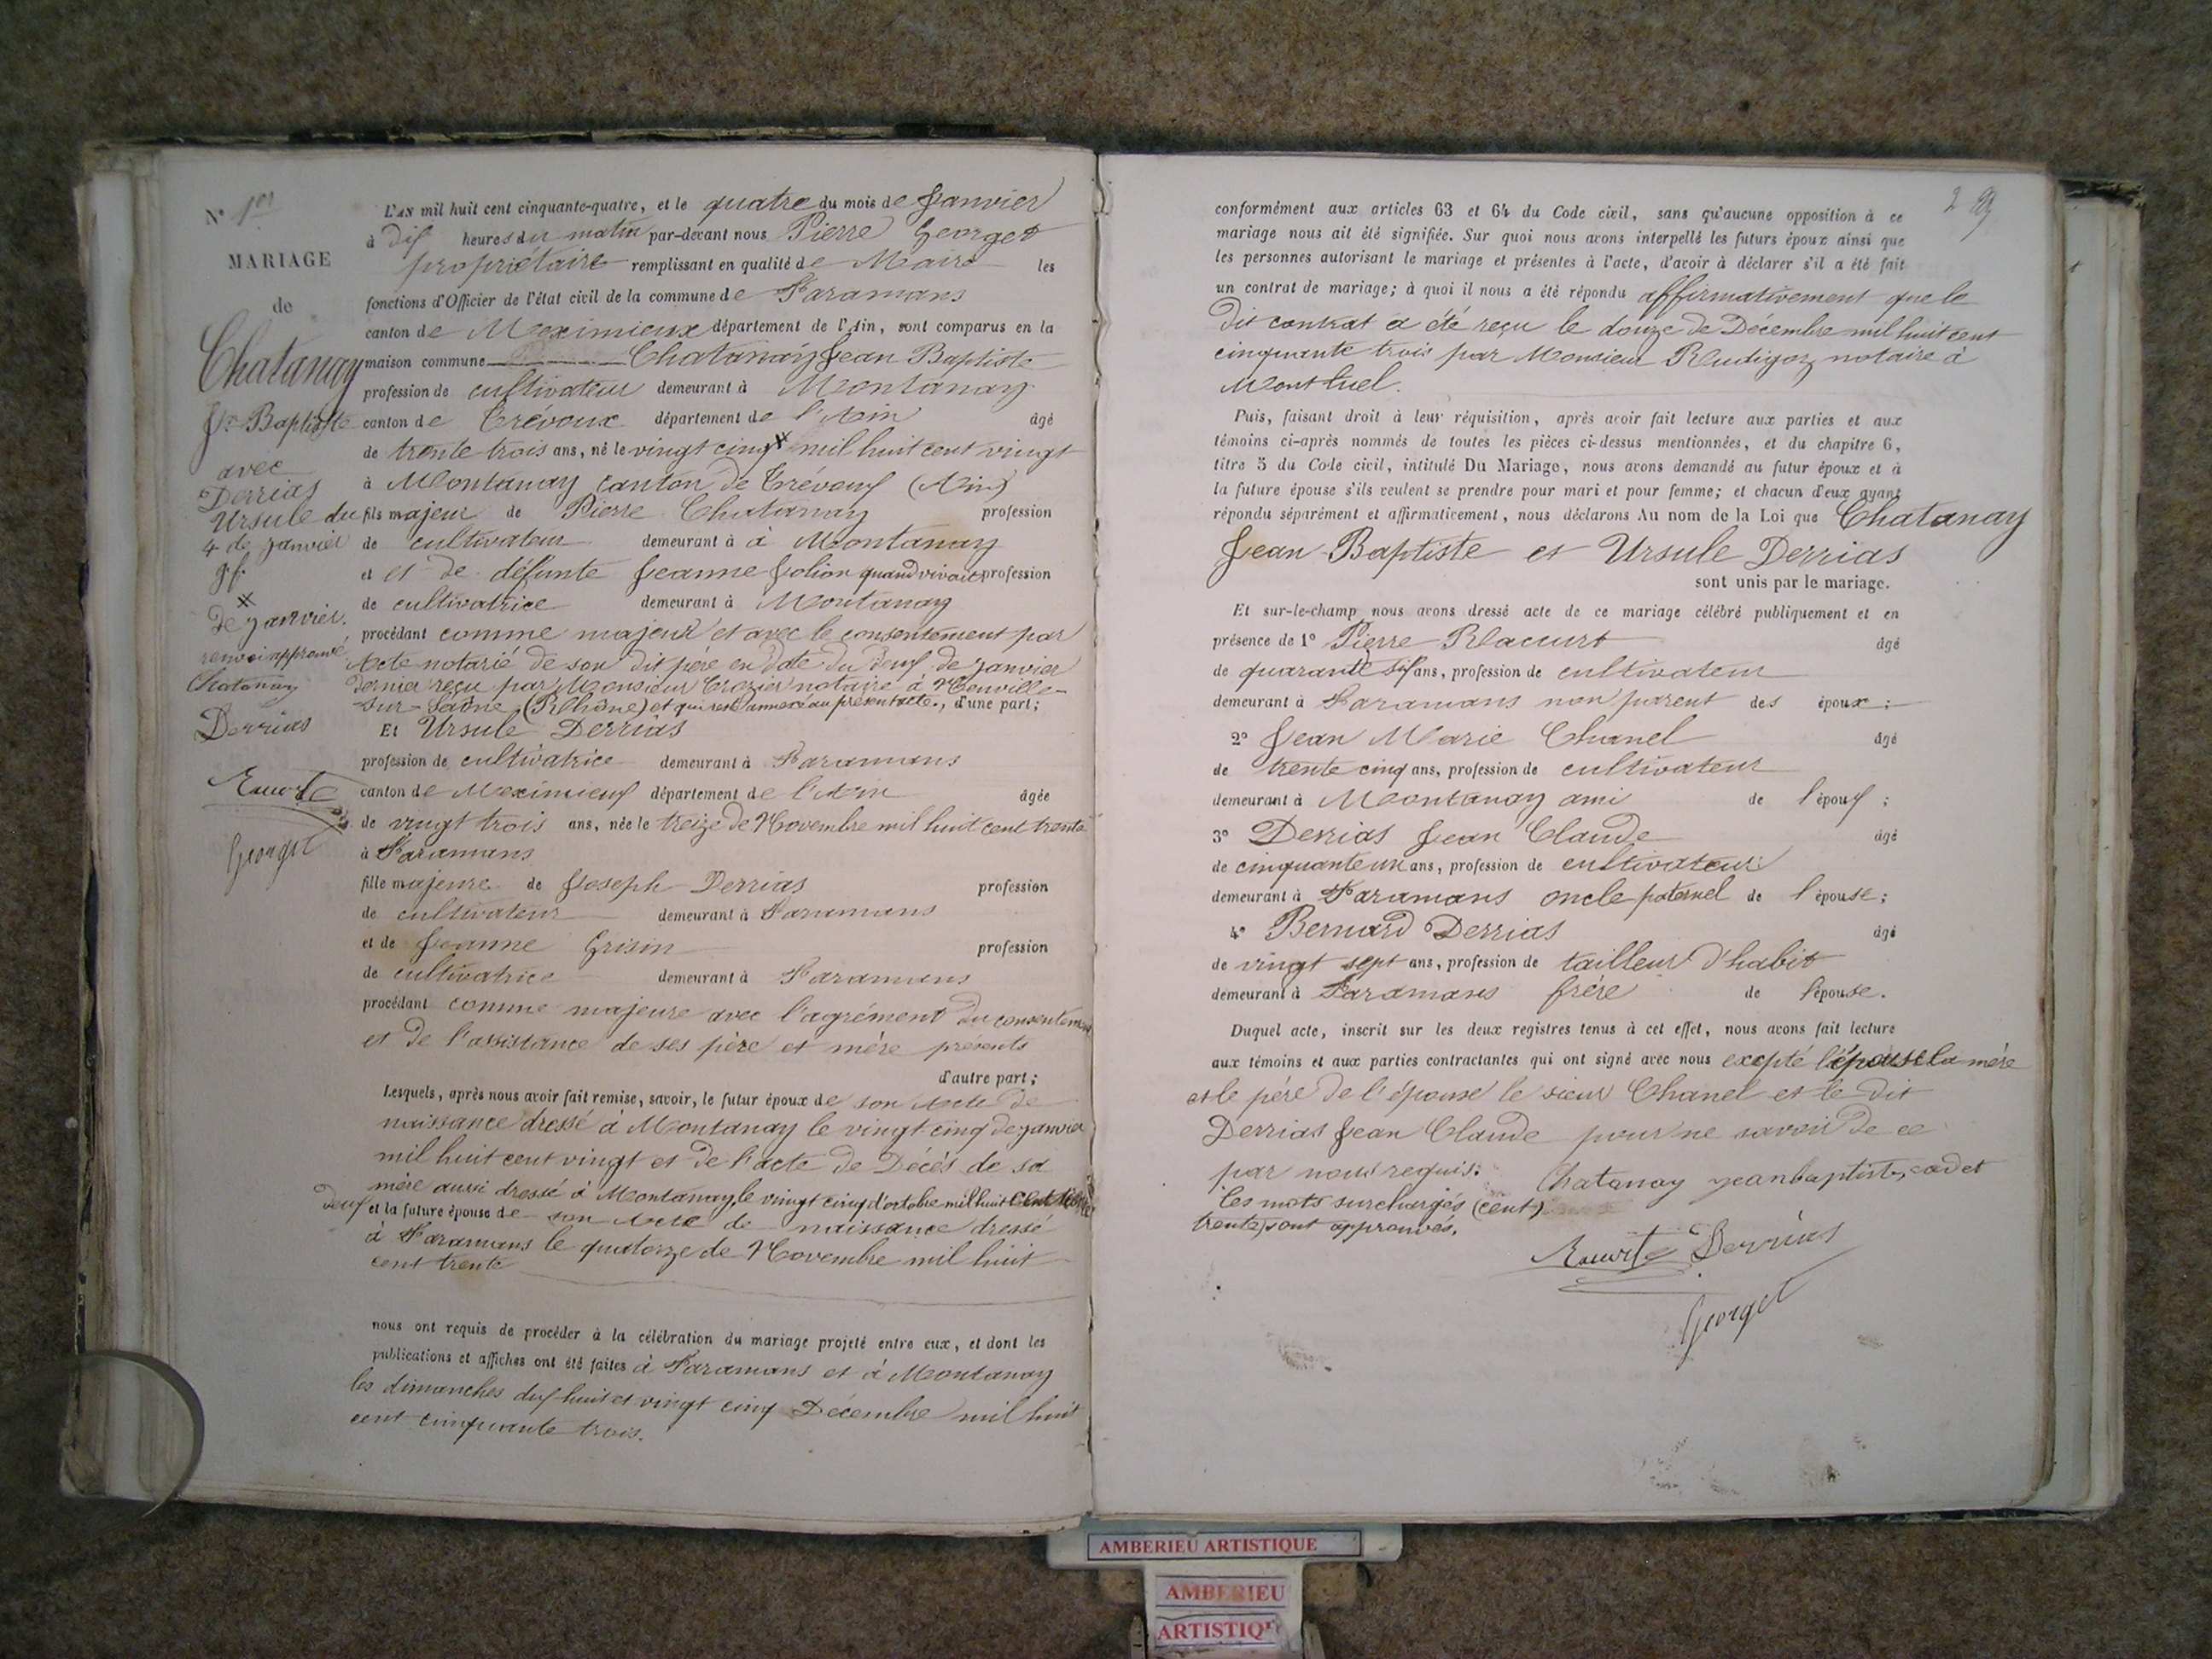 N° 1er
MARIAGE
de
Chatanay
Jn Baptiste
avec
Derrias
Ursule du
4 de janvier
g.f.
x
de janvier.
renvoi approuvé
Chatanay
Derrias
Georget
L'AN mil huit cent cinquante-quatre, et le quatre du mois de Janvier
à dix heures du matin par-devant nous Pierre Georget
propriétaire remplissant en qualité de Maire les
fonctions d'Officier de l'état civil de la commune de Faramans
canton de Meximieux département de l'Ain, sont comparus en la
maison commune Chatanay Jean Baptiste
profession de cultivateur demeurant à Montanay
canton de Trévoux département de l'Ain âgé
de trente trois ans, né le vingt cinq x mil huit cent vingt
à Montanay canton de Trévoux (Ain)
fils majeur de Pierre Chatanay profession
de cultivateur demeurant à à Montanay
et et de défunte Jeanne Jolion quand vivait profession
de cultivatrice demeurant à Montanay
procédant comme majeur et avec le consentement par
Acte notarié de son dit père en date du deux de janvier
dernier reçu par Monsieur Crozier notaire à Neuville-
sur-Saône, (Rhône) et qui reste annexé au présent acte., d'une part;
Et Ursule Derrias
profession de cultivatrice demeurant à Faramans
canton de Meximieux département de l'Ain âgée
de vingt trois ans, née le treize de Novembre mil huit cent trente
à Faramans
fille majeure de Joseph Derrias profession
de cultivateur demeurant à Faramans
et de Jeanne Grisin profession
de cultivatrice demeurant à Faramans
procédant comme majeure avec l'agrément du consentement
et de l'assistance de ses père et mère présents
d'autre part;
Lesquels, après nous avoir fait remise, savoir, le futur époux de son Acte de
naissance dressé à Montanay le vingt cinq de janvier
mil huit cent vingt et de l'acte de Décès de sa
mère aussi dressé à Montanay, le vingt cinq d'octobre mil huit cent trente
deux et la future épouse de son Acte de naissance dressé
à Faramans le quatorze de Novembre mil huit
cent trente
nous ont requis de procéder à la célébration du mariage projeté entre eux, et dont les
publications et affiches ont été faites à Faramans et à Montanay
les dimanches dix huit et vingt cinq Décembre mil huit
cent cinquante trois.
2
conformément aux articles 63 et 64 du Code civil, sans qu'aucune opposition à ce
mariage nous ait été signifiée. Sur quoi nous avons interpellé les futurs époux ainsi que
les personnes autorisant le mariage et présentes à l'acte, d'avoir à déclarer s'il a été fait
un contrat de mariage; à quoi il nous a été répondu affirmativement que le
dit contrat a été reçu le douze de Décembre mil huit cent
cinquante trois par Monsieur Rudigoz notaire à
Montluel.
Puis, faisant droit à leur réquisition, après avoir fait lecture aux parties et aux
témoins ci-après nommés de toutes les pièces ci-dessus mentionnées, et du chapitre 6,
titre 5 du Code civil, intitulé Du Mariage, nous avons demandé au futur époux et à
la future épouse s'ils veulent se prendre pour mari et pour femme; et chacun d'eux ayant
répondu séparément et affirmativement, nous déclarons Au nom de la Loi que Chatanay
Jean Baptiste et Ursule Derrias
sont unis par le mariage.
Et sur-le-champ nous avons dressé acte de ce mariage célébré publiquement et en
présence de 1° Pierre âgé
de quarante six ans, profession de cultivateur
demeurant à Faramans non parent des époux;
2° Jean Marie Chanel âgé
de trente cinq ans, profession de cultivateur
demeurant à Montanay ami de l'époux;
3° Derrias Jean Claude âgé
de cinquante un ans, profession de cultivateur
demeurant à Faramans oncle paternel de l'épouse;
4° Bernard Derrias âgé
de vingt sept ans, profession de tailleur d'habit
demeurant à Faramans frère de l'épouse.
Duquel acte, inscrit sur les deux registres tenus à cet effet, nous avons fait lecture
aux témoins et aux parties contractantes qui ont signé avec nous excepté l'épouse la mère
et le père de l'épouse le sieur Chanel et le dit
Derrias Jean Claude pour ne savoir de ce
par nous requis. Chatanay jeanbaptiste, cadet
les mots surchargés (cent)
trente) sont approuvés.
Derrias
Georget
AMBERIEU ARTISTIQUE
AMBERIEU
ARTISTIQU